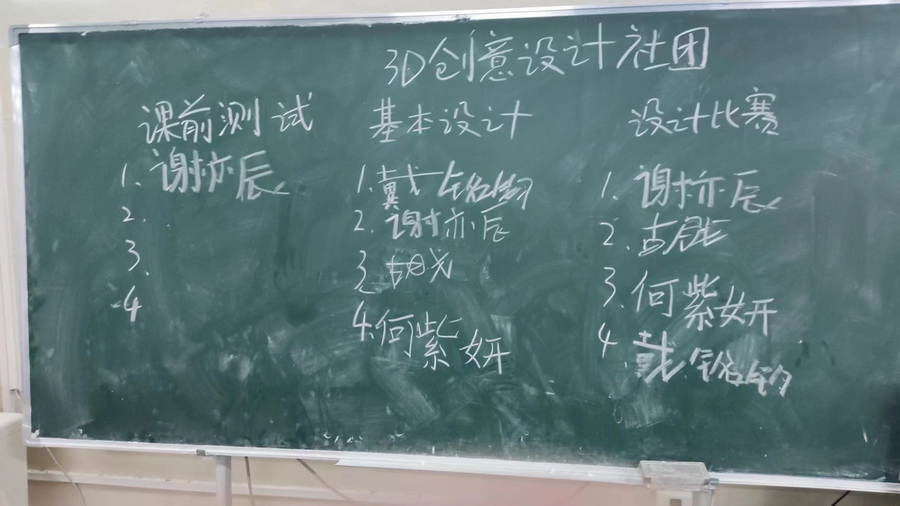 3D创意设计社团
课前测试
1. 谢亦辰
2.
3.
4
基本设计
1. 戴铭
2. 谢亦辰
3. 胡
4. 何紫妍
设计比赛
1. 谢亦辰
2.
3. 何紫妍
4. 戴铭钧